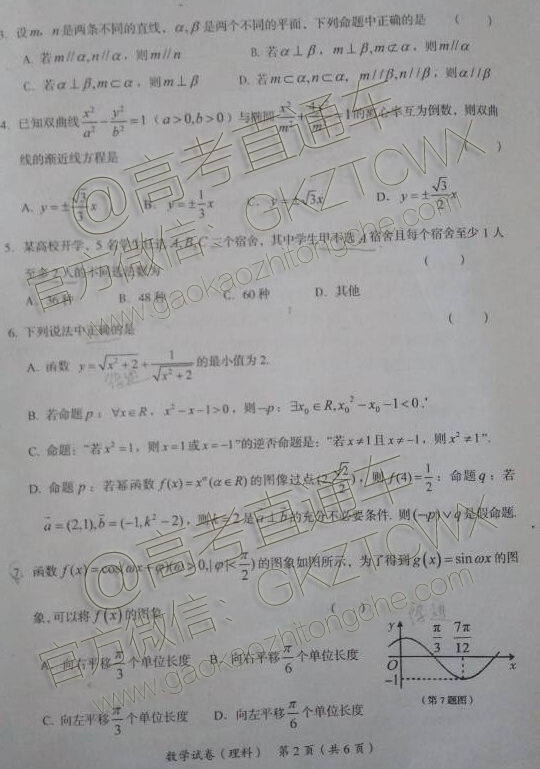 3. 设m，n是两条不同的直线，α,β是两个不同的平面，下列命题中正确的是 （ ）
A. 若m//α,n//α，则m//n B. 若α⊥β，m⊥β,m⊄α，则m//α
C. 若α⊥β,m⊂α，则m⊥β D. 若m⊂α,n⊂α，m//β,n//β，则α//β
4. 已知双曲线x²/a²−y²/b²=1（a>0,b>0）与椭圆 的离心率互为倒数，则双曲
线的渐近线方程是 （ ）
A. y=±√3/3 x B. y=±1/3 x C. y=±√3x D. y=±√3/2 x
5. 某高校开学，5名学生 A,B,C三个宿舍，其中学生甲不选A宿舍且每个宿舍至少1人
至多2人的不同选法数为 （ ）
A. 36种 B. 48种 C. 60种 D. 其他
6. 下列说法中正确的是 （ ）
A. 函数 y=√(x²+2)+1/√(x²+2)的最小值为2.
B. 若命题p：∀x∈R，x²−x−1>0，则¬p：∃x₀∈R,x₀²−x₀−1<0.
C. 命题：“若x²=1，则x=1或x=−1”的逆否命题是：“若x≠1且x≠−1，则x²≠1”.
D. 命题p：若幂函数f(x)=xᵅ(α∈R)的图像过点(2,√2/2)，则f(4)=1/2；命题q：若
a⃗=(2,1),b⃗=(−1,k²−2)，则k=2是a⃗⊥b⃗的充分不必要条件. 则(¬p)∨q是假命题.
7. 函数f(x)=cos(ωx+φ)(ω>0,|φ|<π/2)的图象如图所示，为了得到g(x)=sinωx的图
象,可以将f(x)的图象 （ ）
A. 向右平移π/3个单位长度 B. 向右平移π/6个单位长度
C. 向左平移π/3个单位长度 D. 向左平移π/6个单位长度
y
π/3 7π/12
O x
−1
（第7题图）
数学试卷（理科） 第2页（共6页）
@高考直通车
官方微信、GKZTCWX
www.gaokaozhitongche.com
@高考直通车
官方微信、GKZTCWX
www.gaokaozhitongche.com